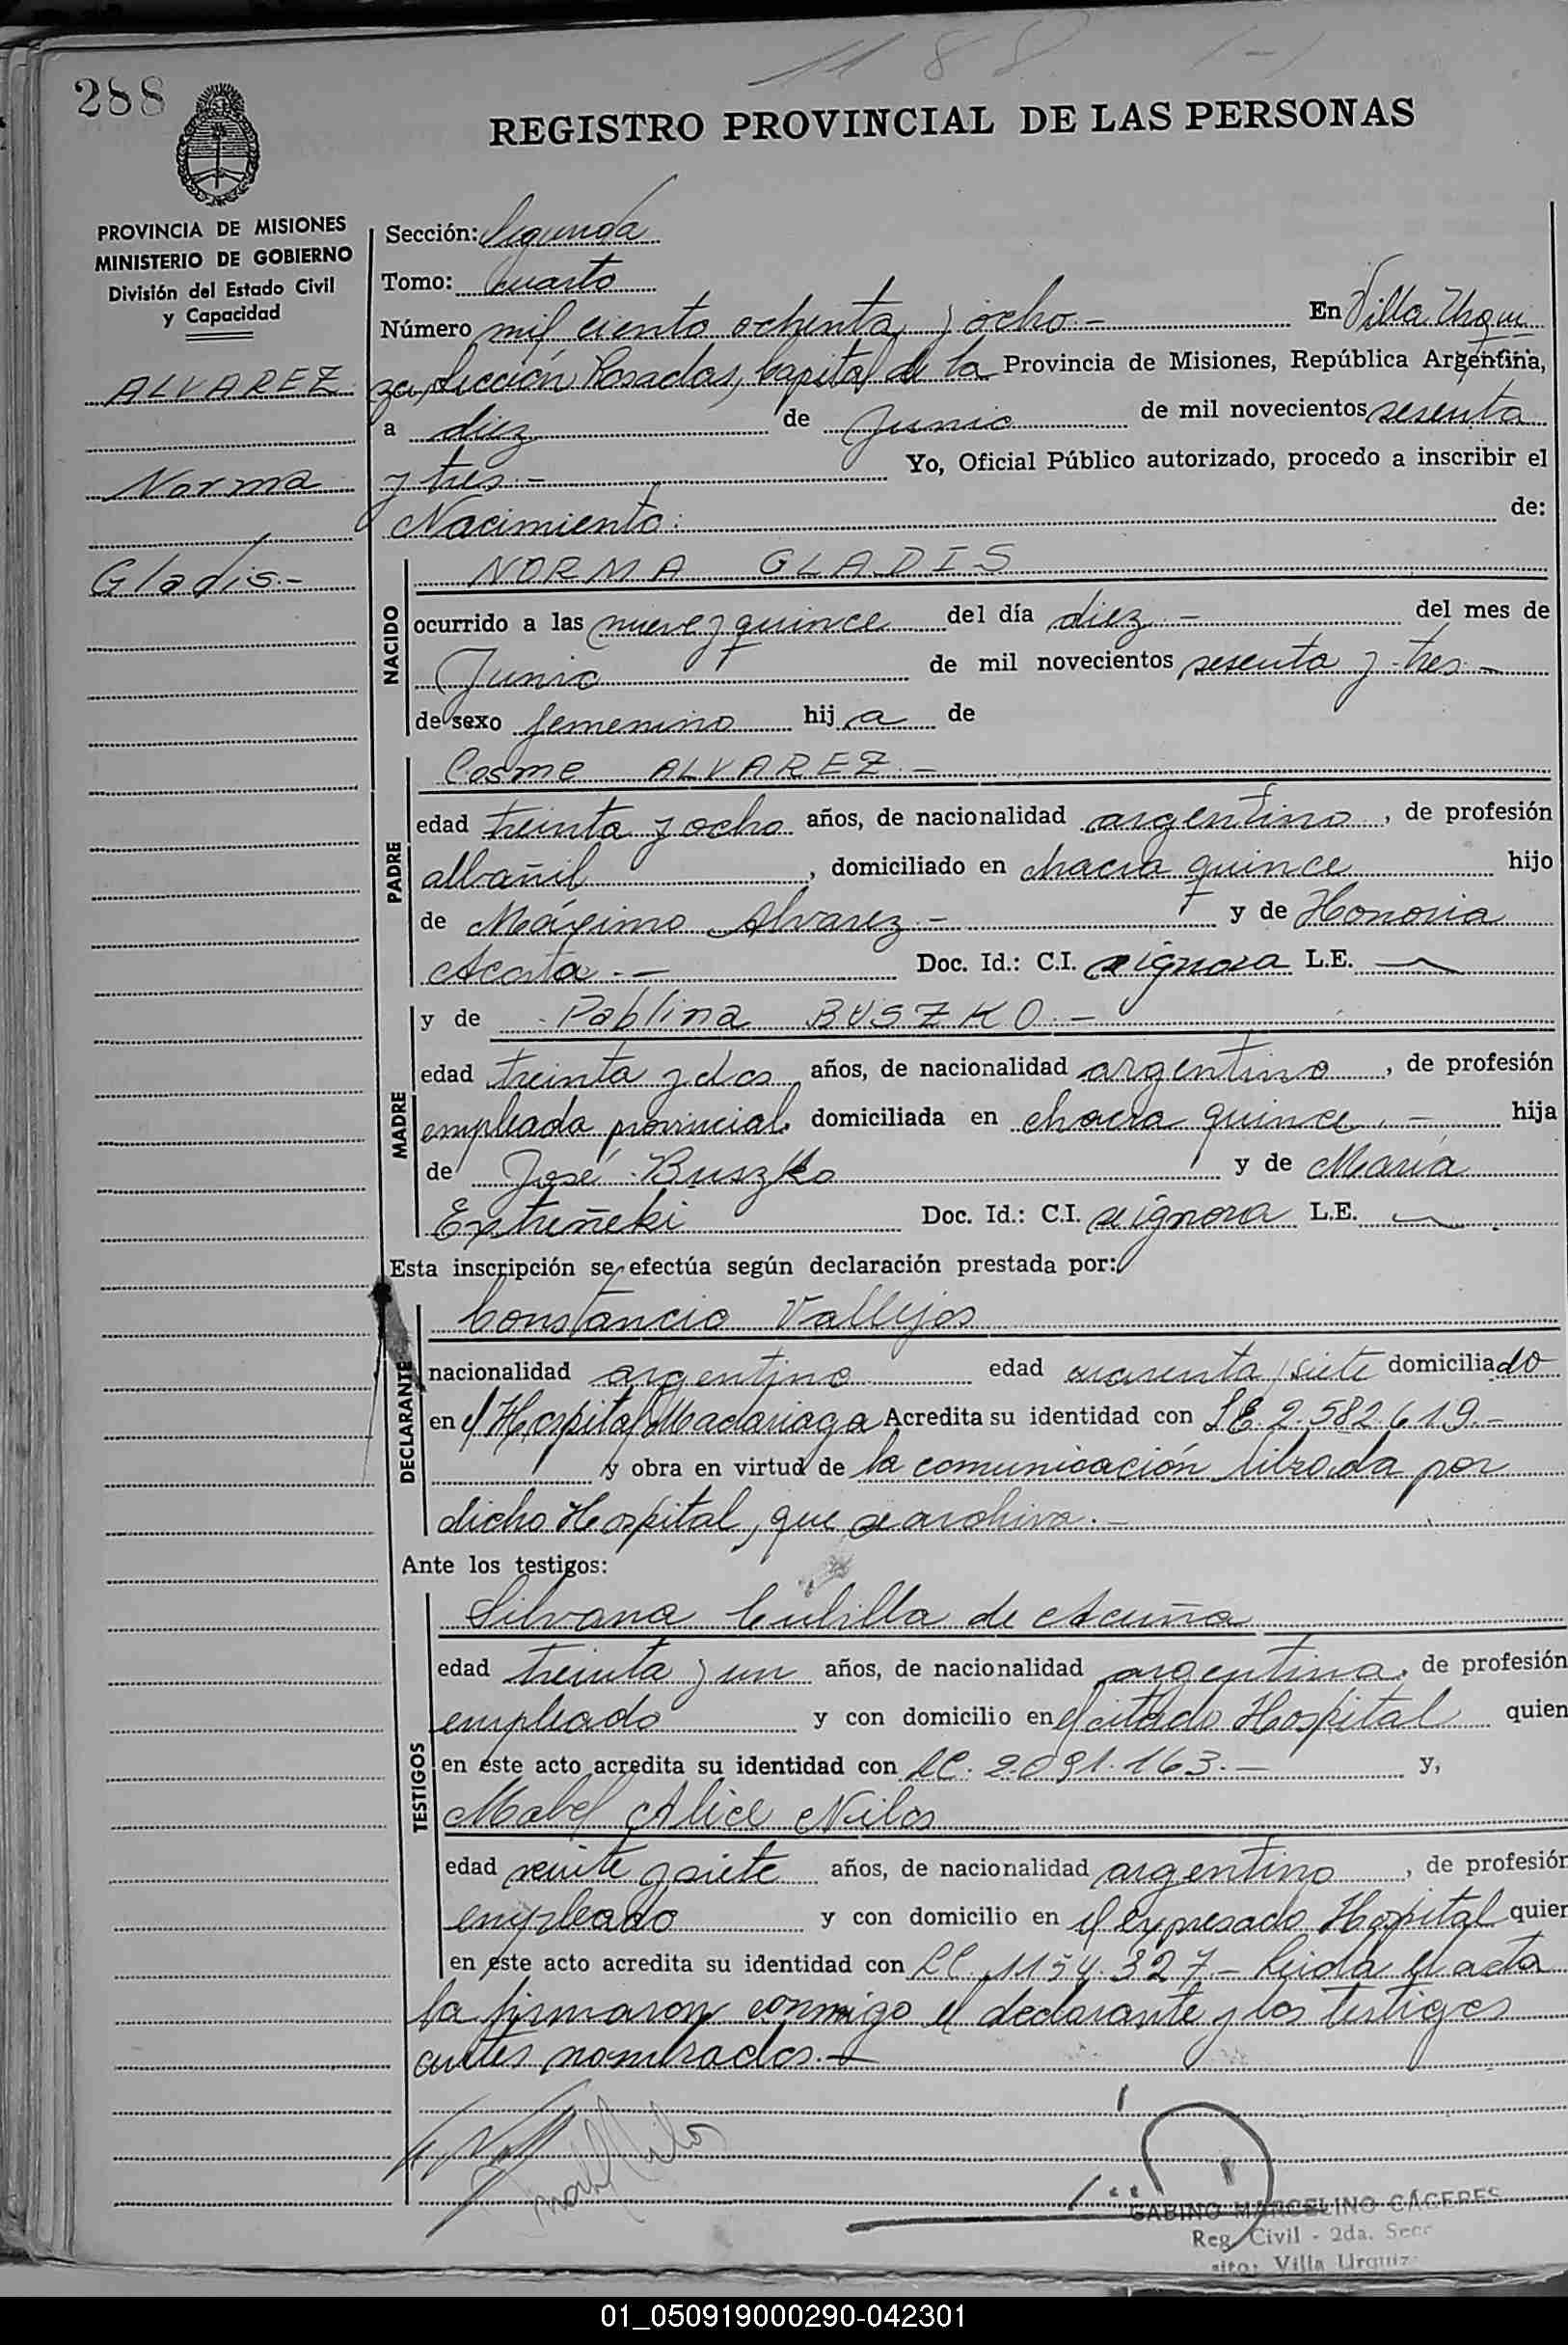 1188
288
REGISTRO PROVINCIAL DE LAS PERSONAS
PROVINCIA DE MISIONES
MINISTERIO DE GOBIERNO
División del Estado Civil
y Capacidad
ALVAREZ
Norma
Gladis.-
Sección: Segunda
Tomo: Cuarto
Número mil ciento ochenta y ocho.- En Villa Urqui
za, Sección Posadas, Capital de la Provincia de Misiones, República Argentina,
a diez de Junio de mil novecientos sesenta
y tres.- Yo, Oficial Público autorizado, procedo a inscribir el
Nacimiento: de:
NACIDO
NORMA GLADIS
ocurrido a las nueve y quince del día diez.- del mes de
Junio de mil novecientos sesenta y tres.-
de sexo femenino hij a de
PADRE
Cosme ALVAREZ.-
edad treinta y ocho años, de nacionalidad argentino, de profesión
albañil, domiciliado en chacra quince hijo
de Máximo Alvarez.- y de Honoria
Acosta.- Doc. Id.: C.I. se ignora L.E.
MADRE
y de Pablina BUSZKO.-
edad treinta y dos años, de nacionalidad argentina, de profesión
empleada provincial, domiciliada en chacra quince.- hija
de José Buszko y de María
Extreñeki Doc. Id.: C.I. se ignora L.E.
Esta inscripción se efectúa según declaración prestada por:
DECLARANTE
Constancio Vallejos
nacionalidad argentino edad cuarenta y siete domiciliado
en el Hospital Madariaga Acredita su identidad con L.E. 2.582.619.-
y obra en virtud de la comunicación librada por
dicho Hospital, que se archiva.-
Ante los testigos:
TESTIGOS
Silvana Cubilla de Acuña
edad treinta y un años, de nacionalidad argentina, de profesión
empleado y con domicilio en el citado Hospital quien
en este acto acredita su identidad con LC. 2.091.163.- y,
Mabel Alice Nilos
edad veinte y siete años, de nacionalidad argentino, de profesión
empleado y con domicilio en el expresado Hospital quien
en este acto acredita su identidad con LC. 1154.327.- Leida el acta
la firmaron conmigo el declarante y los testigos
antes nombrados.-
GABINO MARCELINO CACERES
Reg. Civil - 2da. Secc
Villa Urquiz
01_050919000290-042301